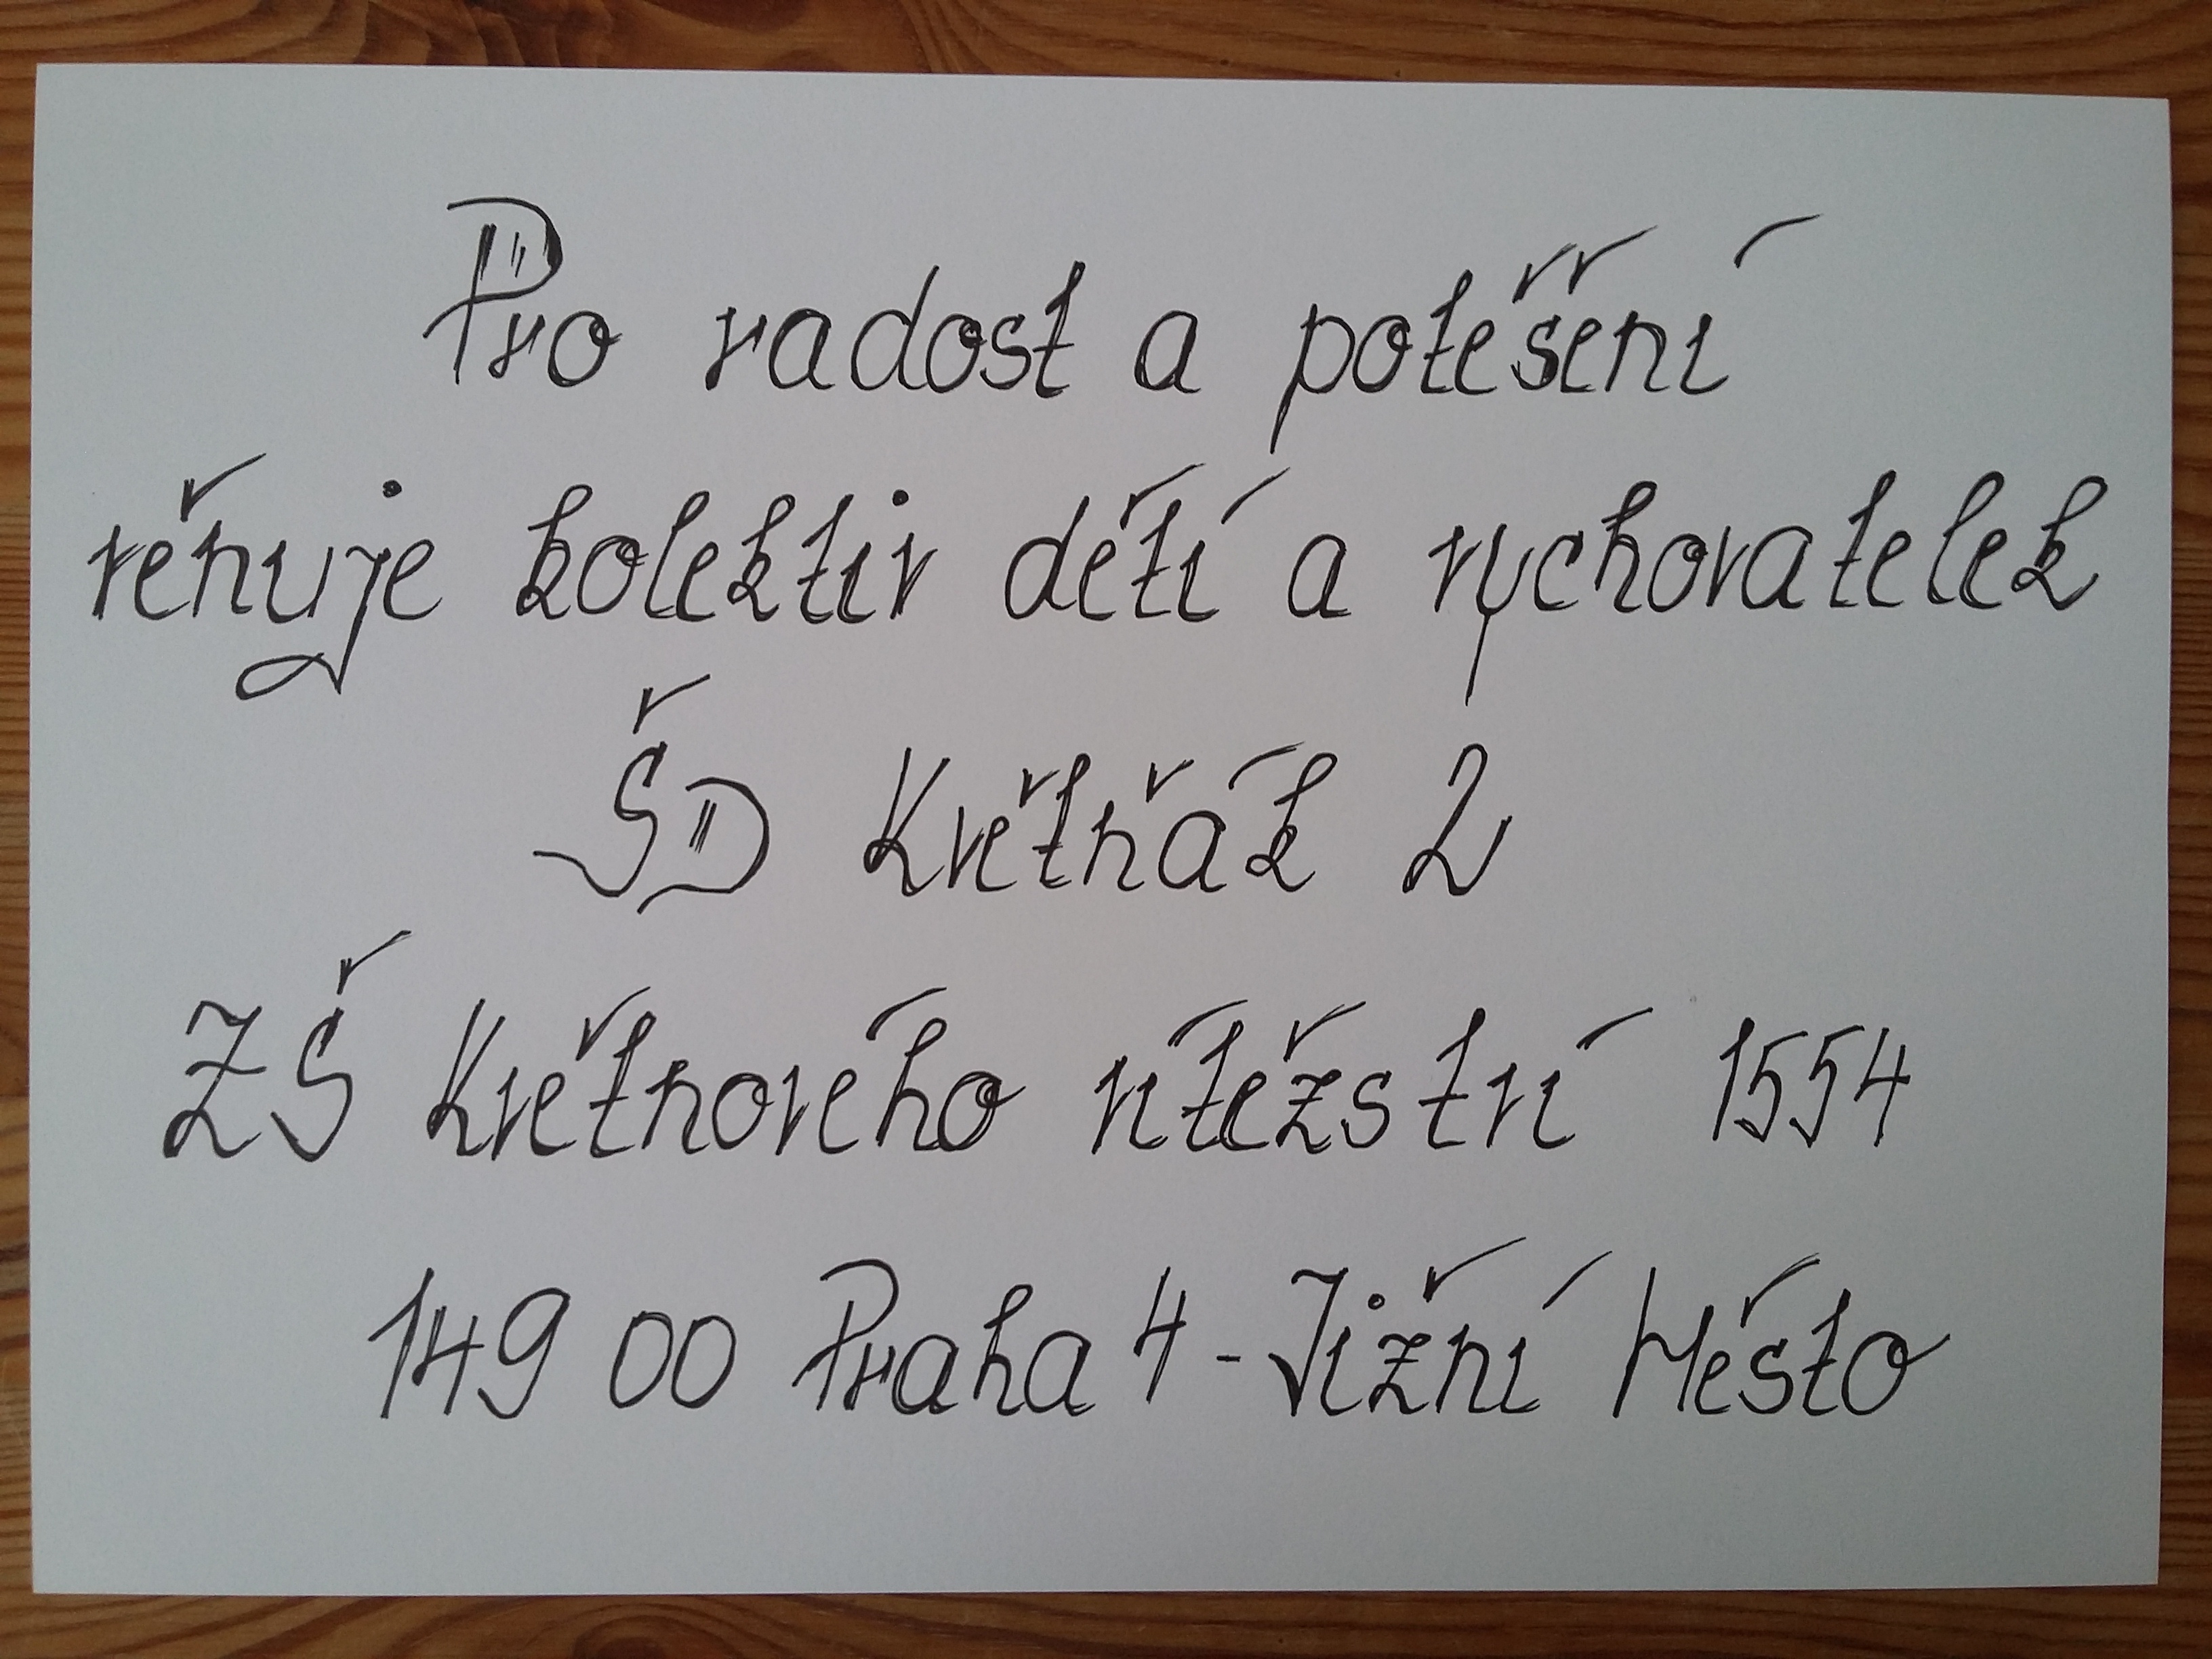 Pro radost a potěšení
věnuje kolektiv dětí a vychovatelek
ŠD Květňák 2
ZŠ Květnového vítězství 1554
149 00 Praha 4 - Jižní Město